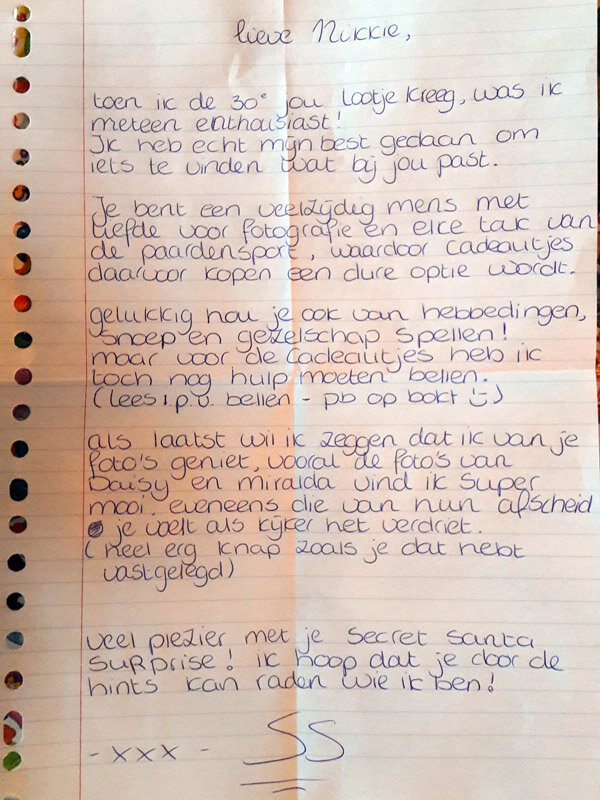 lieve Nikkie,
toen ik de 30e jou lootje kreeg, was ik
meteen enthousiast!
Ik heb echt mijn best gedaan om
iets te vinden wat bij jou past.
Je bent een veelzijdig mens met
liefde voor fotografie en elke tak van
de paardensport, waardoor cadeautjes
daarvoor kopen een dure optie wordt.
gelukkig hou je ook van hebbedingen,
snoep en gezelschap spellen!
maar voor de cadeautjes heb ik
toch nog hulp moeten bellen.
(lees i.p.v. bellen - pb op bokt :))
als laatst wil ik zeggen dat ik van je
foto's geniet, vooral de foto's van
Daisy en miralda vind ik super
mooi. eveneens die van hun afscheid
je voelt als kijker het verdriet.
(Heel erg knap zoals je dat hebt
vastgelegd)
veel plezier met je secret santa
surprise! ik hoop dat je door de
hints kan raden wie ik ben!
- xxx - SS